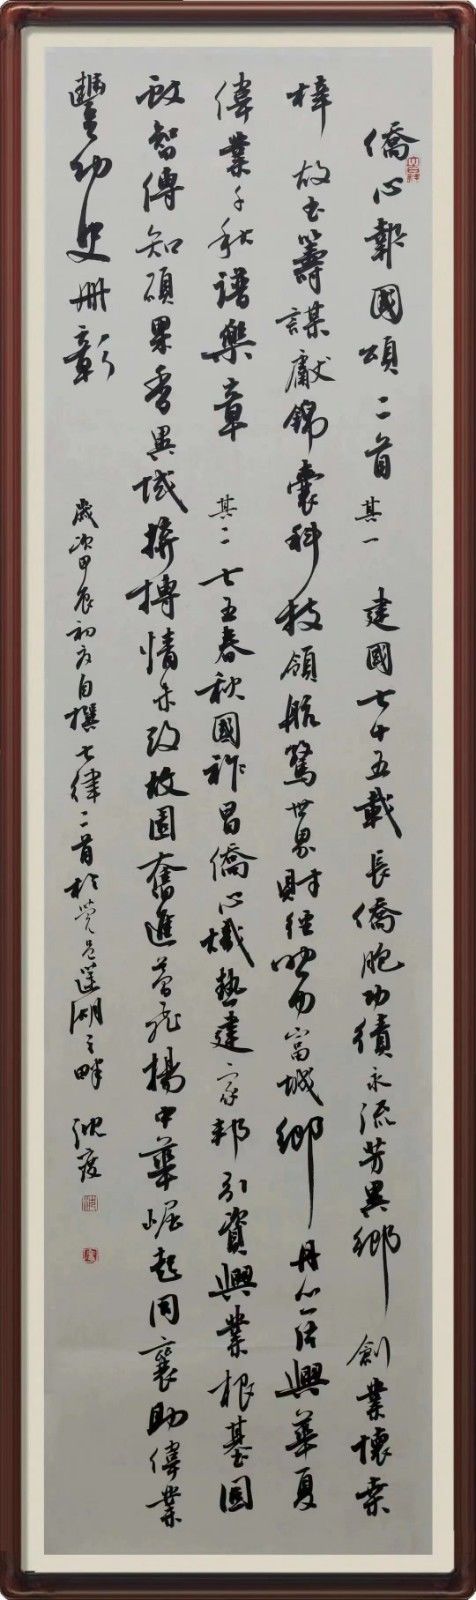 僑心報國頌二首 其一 建國七十五載長僑胞功績永流芳異鄉創業懷桑
梓故土籌謀獻錦囊科技領航驚世界財經富城鄉丹心興華夏
偉業千秋譜樂章 其二 七五春秋國祚昌僑心熾熱建家邦引資興業根基固
啟智傳知碩果香異域拼搏情未改故園奮進夢飛揚中華崛起同襄助偉業
豐功史冊彰 歲次甲辰初夏自撰七律二首於莞邑蓮湖之畔